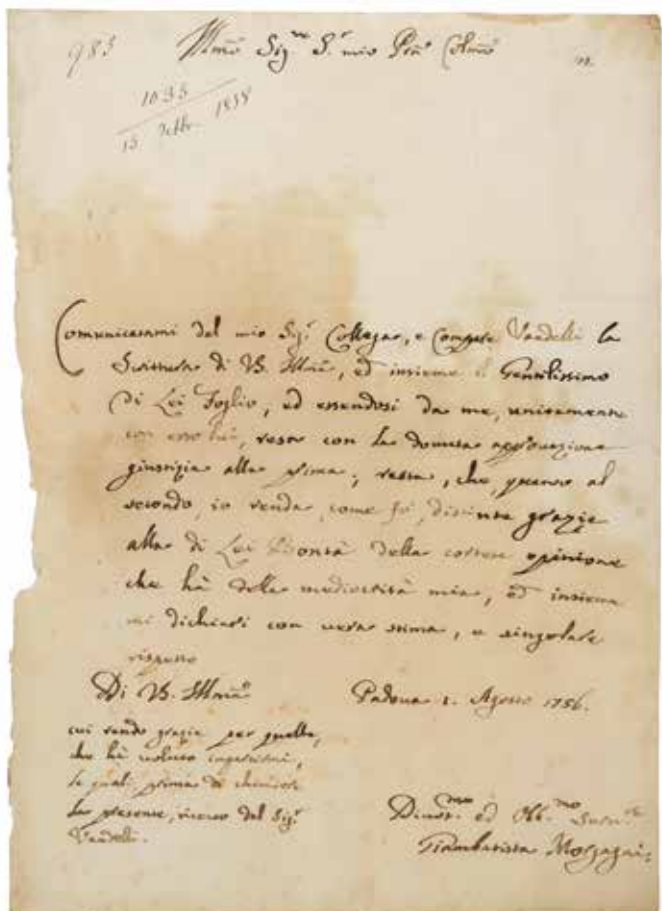 983
Illmo Sigre Sr mio Pron Colmo
1033
15 Settbr. 1838
Comunicatami dal mio Sigr Collega, e Compare Vandelli la
Scrittura di VS. Illma, ed insieme il Gentilissimo
di Lei Foglio, ed essendosi da me, unitamente
con esso lui, resa con la dovuta approvazione
giustizia alla prima; resta, che quanto al
secondo, io renda, come fo, distinte grazie
alla di Lei Bontà della cortese opinione
che hà della mediocrità mia, ed insieme
mi dichiari con vera stima, e singolare
rispetto
Di VS. Illma
Padova 1. Agosto 1756.
cui rendo grazie per quelle,
che hà voluto
le quali prima di chiudere
la presente, ricevo dal Sigr
Vandelli.
Devotmo ed Obbmo Servre
Giambatista Morgagni